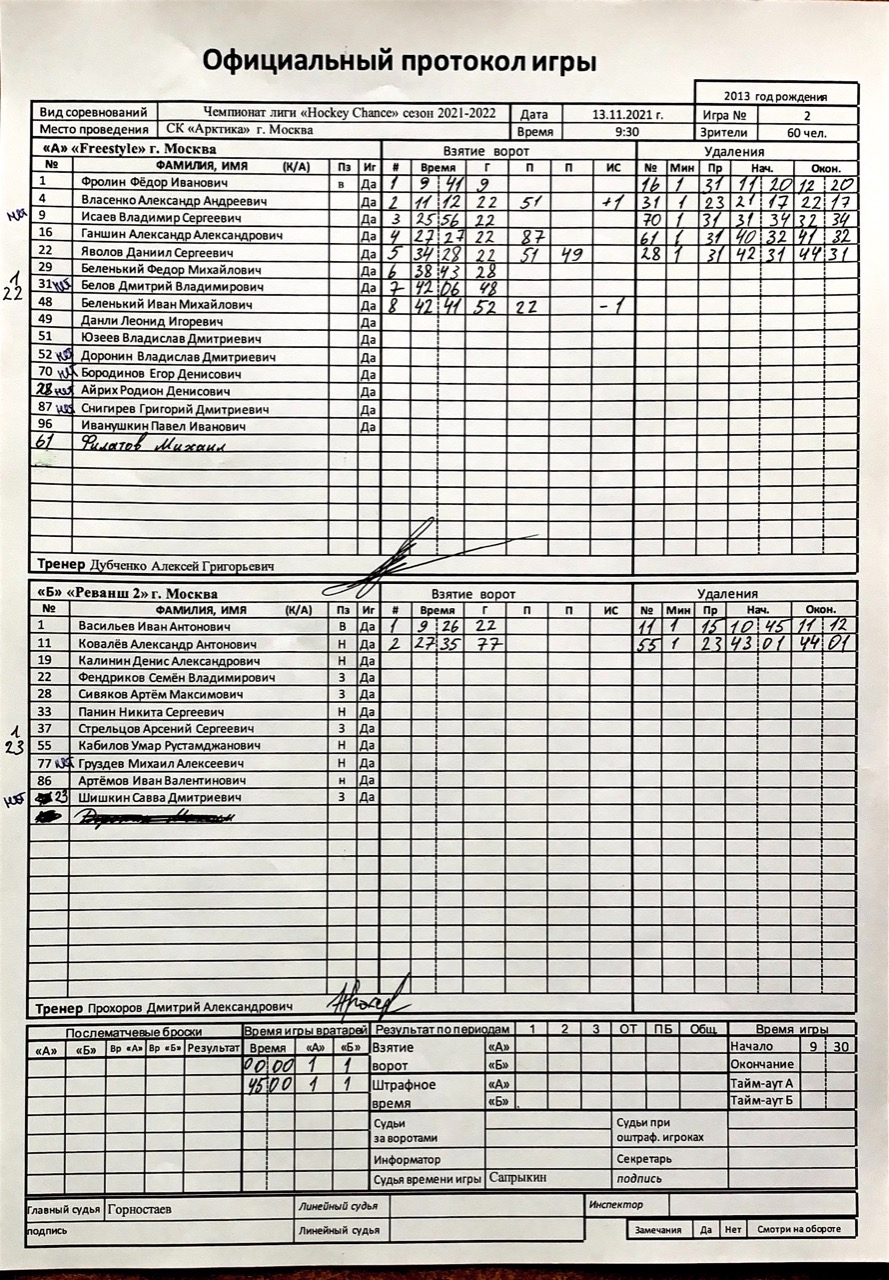 Официальный протокол игры
2013 год рождения
Вид соревнований Чемпионат лиги «Hockey Chance» сезон 2021-2022 Дата 13.11.2021 г. Игра № 2
Место проведения СК «Арктика» г. Москва Время 9:30 Зрители 60 чел.
«А» «Freestyle» г. Москва Взятие ворот Удаления
№ ФАМИЛИЯ, ИМЯ (К/А) Пз Иг # Время Г П П ИС № Мин Пр Нач. Окон.
1 Фролин Фёдор Иванович в Да 1 9 41 9 16 1 31 11 20 12 20
4 Власенко Александр Андреевич Да 2 11 12 22 51 +1 31 1 23 21 17 22 17
нет 9 Исаев Владимир Сергеевич Да 3 25 56 22 70 1 31 31 34 32 34
16 Ганшин Александр Александрович Да 4 27 27 22 87 61 1 31 40 32 41 32
22 Яволов Даниил Сергеевич Да 5 34 28 22 51 49 28 1 31 42 31 44 31
29 Беленький Федор Михайлович Да 6 38 43 28
1
22
31 нет Белов Дмитрий Владимирович Да 7 42 06 48
48 Беленький Иван Михайлович Да 8 42 41 52 22 -1
49 Данли Леонид Игоревич Да
51 Юзеев Владислав Дмитриевич Да
52 нет Доронин Владислав Дмитриевич Да
70 нет Бородинов Егор Денисович Да
28 нет Айрих Родион Денисович Да
87 нет Снигирев Григорий Дмитриевич Да
96 Иванушкин Павел Иванович Да
61 Филатов Михаил
Тренер Дубченко Алексей Григорьевич
«Б» «Реванш 2» г. Москва Взятие ворот Удаления
№ ФАМИЛИЯ, ИМЯ (К/А) Пз Иг # Время Г П П ИС № Мин Пр Нач. Окон.
1 Васильев Иван Антонович В Да 1 9 26 22 11 1 15 10 45 11 12
11 Ковалёв Александр Антонович Н Да 2 27 35 77 55 1 23 43 01 44 01
19 Калинин Денис Александрович Н Да
22 Фендриков Семён Владимирович З Да
28 Сивяков Артём Максимович З Да
33 Панин Никита Сергеевич Н Да
37 Стрельцов Арсений Сергеевич З Да
1
23
55 Кабилов Умар Рустамджанович Н Да
77 нет Груздев Михаил Алексеевич Н Да
86 Артёмов Иван Валентинович н Да
нет 23 Шишкин Савва Дмитриевич З Да
Тренер Прохоров Дмитрий Александрович
Послематчевые броски Время игры вратарей Результат по периодам 1 2 3 ОТ ПБ Общ. Время игры
«А» «Б» Вр «А» Вр «Б» Результат Время «А» «Б» Взятие «А» Начало 9 30
00 00 1 1 ворот «Б» Окончание
45 00 1 1 Штрафное «А» Тайм-аут А
время «Б» Тайм-аут Б
Судьи за воротами Судьи при оштраф. игроках
Информатор Секретарь
Судья времени игры Сапрыкин подпись
Главный судья Горностаев Линейный судья Инспектор
подпись Линейный судья Замечания Да Нет Смотри на обороте